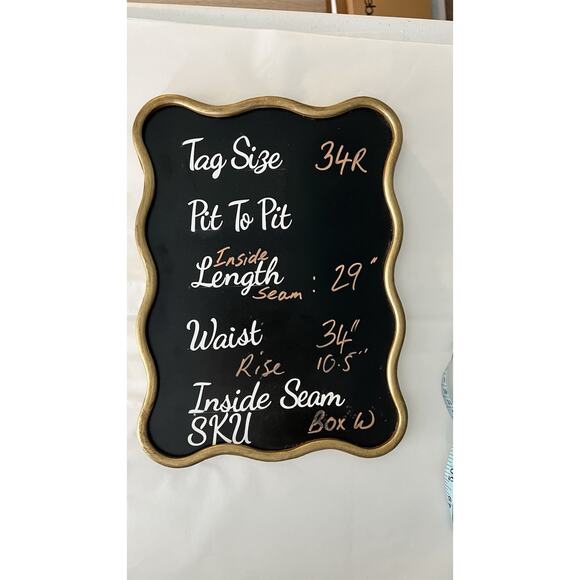 Tag Size 34R
Pit To Pit
Inside
Length : 29"
Seam
Waist 34"
Rise 10.5"
Inside Seam
SKU Box W